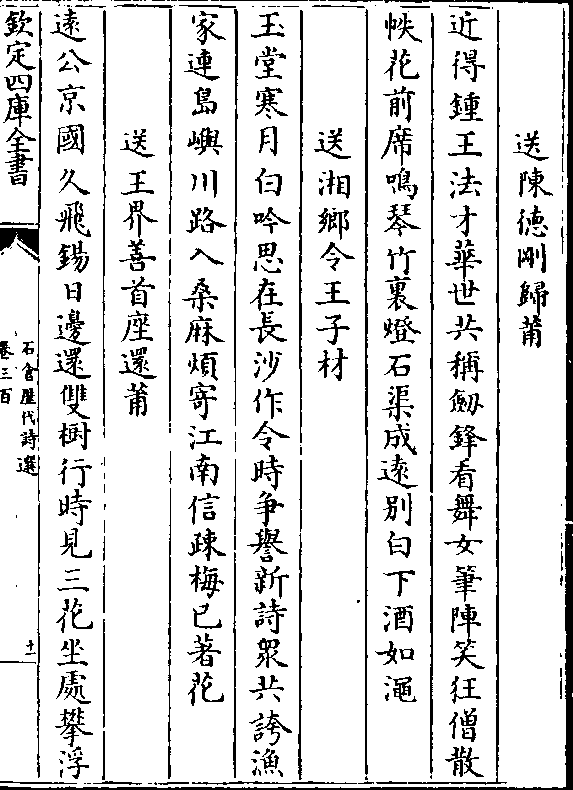 送陳德剛歸莆
近得鍾王法才華世共稱劒鋒看舞女筆陣笑狂僧散
帙花前席鳴琴竹裏燈石渠成遠别白下酒如澠
送湘鄉令王子材
玉堂寒月白吟思在長沙作令時争譽新詩衆共誇漁
家連島嶼川路入桑麻煩寄江南信疎梅已著花
送王界善首座還莆
遠公京國久飛錫日邊還雙樹行時見三花坐處攀浮
欽定四庫全書
石倉歷代詩選
卷三百
十一